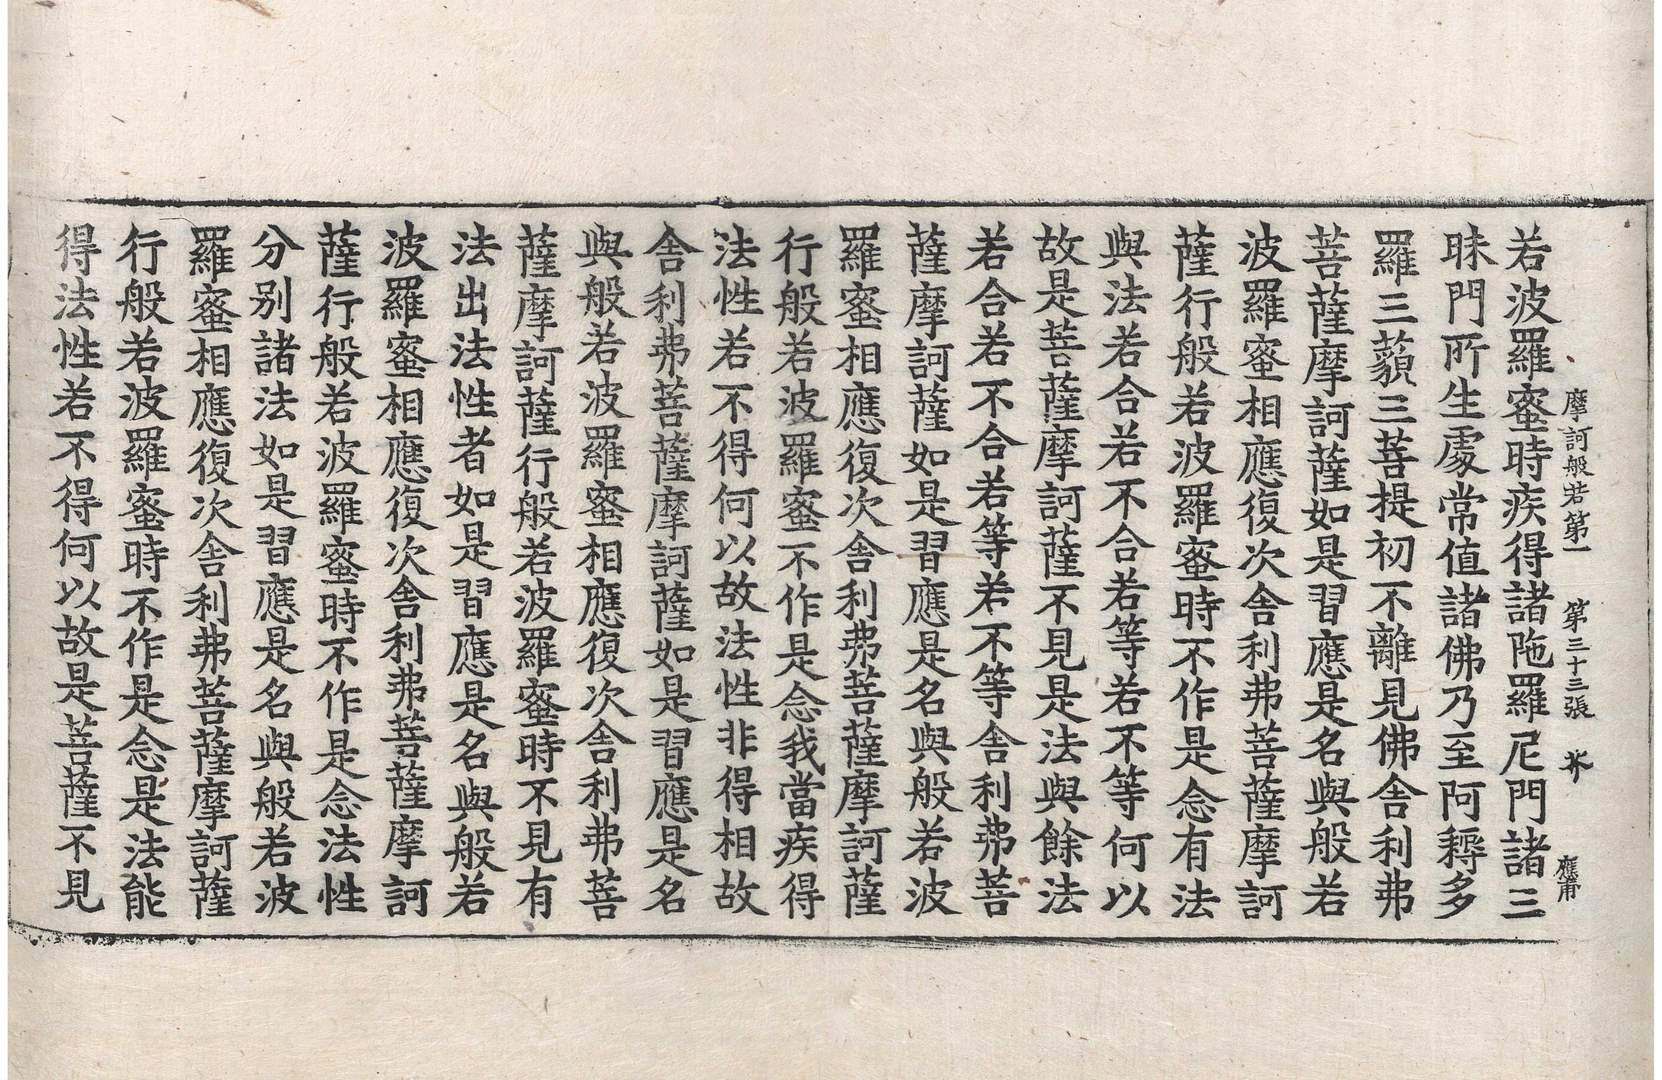 摩訶般若第一　第三十三張　芥　應甫
若波羅蜜時疾得諸陁羅尼門諸三
昧門所生處常值諸佛乃至阿耨多
羅三藐三菩提初不離見佛舍利弗
菩薩摩訶薩如是習應是名與般若
波羅蜜相應復次舍利弗菩薩摩訶
薩行般若波羅蜜時不作是念有法
與法若合若不合若等若不等何以
故是菩薩摩訶薩不見是法與餘法
若合若不合若等若不等舍利弗菩
薩摩訶薩如是習應是名與般若波
羅蜜相應復次舍利弗菩薩摩訶薩
行般若波羅蜜不作是念我當疾得
法性若不得何以故法性非得相故
舍利弗菩薩摩訶薩如是習應是名
與般若波羅蜜相應復次舍利弗菩
薩摩訶薩行般若波羅蜜時不見有
法出法性者如是習應是名與般若
波羅蜜相應復次舍利弗菩薩摩訶
薩行般若波羅蜜時不作是念法性
分別諸法如是習應是名與般若波
羅蜜相應復次舍利弗菩薩摩訶薩
行般若波羅蜜時不作是念是法能
得法性若不得何以故是菩薩不見